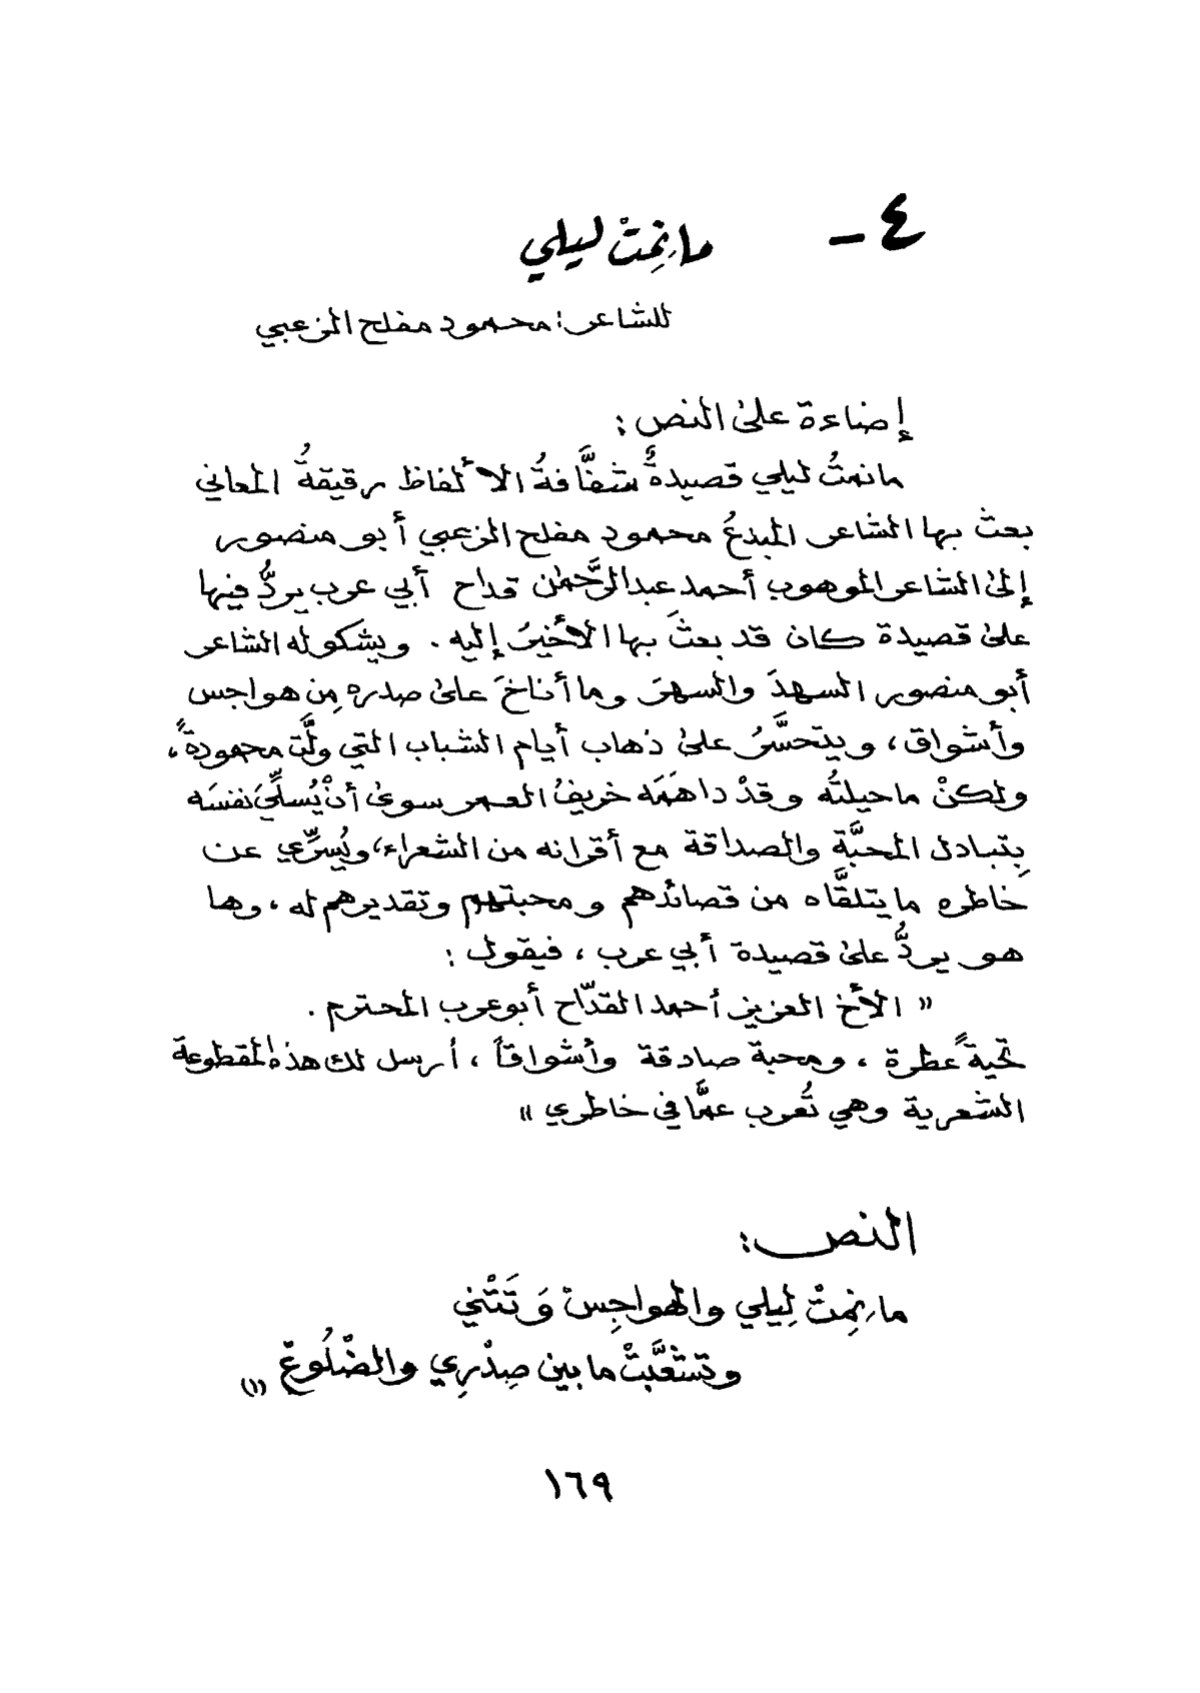 ٤ـ ما نِمتْ ليلي
للشاعر: محمود مفلح الزعبي
إضاءة على النص:
ما نمتُ ليلي قصيدةٌ شفَّافةُ الألفاظ رقيقةُ المعاني
بعث بها الشاعر المبدعُ محمود مفلح الزعبي أبو منصور
إلى الشاعر الموهوب أحمد عبد الرَّحمٰن قداح أبي عرب يردُّ فيها
على قصيدة كان قد بعثَ بها الأخيرُ إليه. ويشكو له الشاعر
أبو منصور السهدَ والسهرَ وما أناخَ على صدره مِن هواجس
وأشواق، ويتحسَّرُ على ذهاب أيام الشباب التي ولَّت محمودةً،
ولكنْ ما حيلتُه وقدْ داهَمَه خريفُ العمر سوى أنْ يُسلِّيَ نفسَه
بِتبادل المحبَّة والصداقة مع أقرانه من الشعراء، ويُسرِّي عن
خاطره ما يتلقَّاه من قصائدهم ومحبتهم وتقديرهم له، وها
هو يردُّ على قصيدة أبي عرب، فيقول:
" الأخ العزيز أحمد القدّاح أبو عرب المحترم.
تحيةً عطرة، ومحبة صادقة وأشواقاً، أرسل لك هذه المقطوعة
الشعرية وهي تُعرب عمَّا في خاطري "
النص:
ما نِمِتْ لِيلي والهواجِسْ وَتَتْني
وتشعَّبَتْ ما بين صِدْرِي والضْلُوعْ (١)
١٦٩